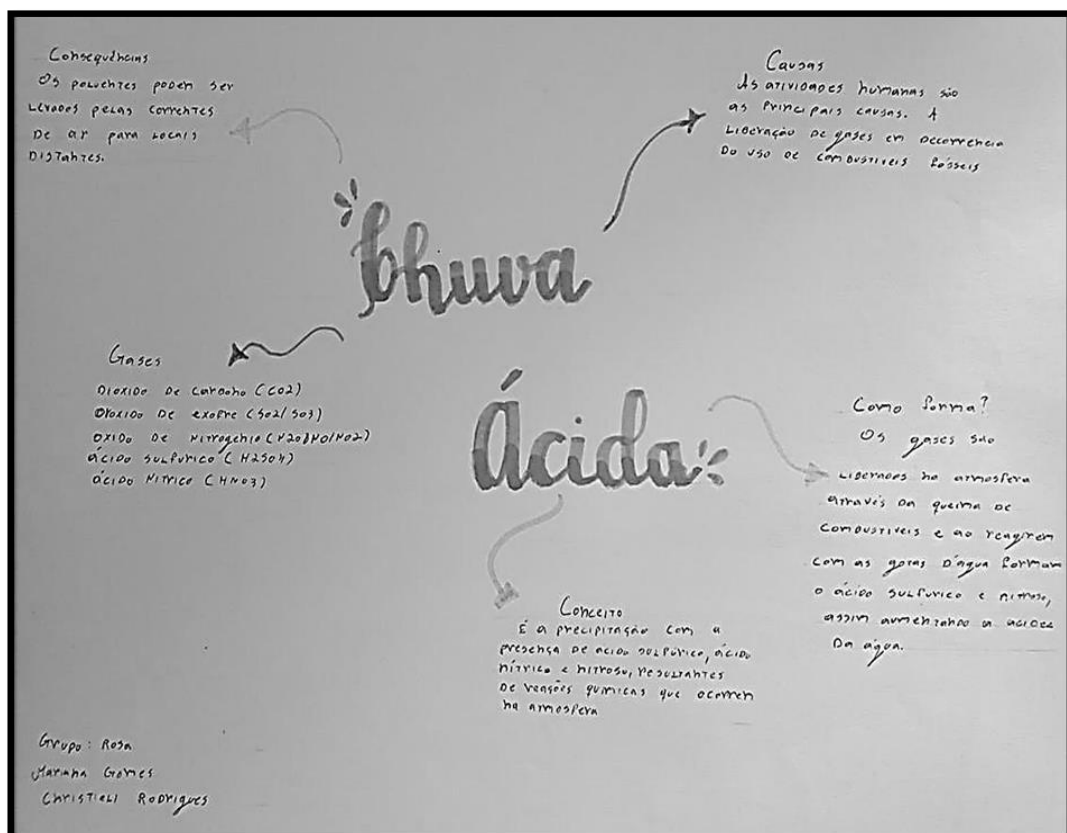 Consequências
Os poluentes podem ser
levados pelas correntes
de ar para locais
distantes.
Causas
As atividades humanas são
as principais causas. A
liberação de gases em decorrencia
do uso de combustiveis fósseis
Chuva
Ácida
Gases
Dioxido de carbono (CO2)
Dioxido de exofre (SO2/SO3)
Oxido de Nitrogênio (N2O/NO/NO2)
ácido sulfurico (H2SO4)
ácido Nítrico (HNO3)
Como forma?
Os gases são
liberados na atmosfera
através da queima de
combustiveis e ao reagirem
com as gotas d'água formam
o ácido sulfurico e nitroso,
assim aumentando a acidez
da água.
Conceito
É a precipitação com a
presença de acido sulfúrico, ácido
nítrico e nitroso, resultantes
de reações quimicas que ocorrem
na atmosfera
Grupo: Rosa
Mariana Gomes
Christieli Rodrigues